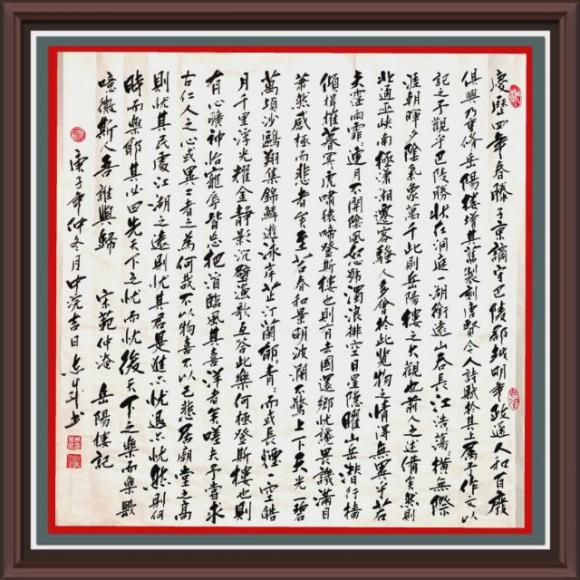 慶歷四年春滕子京謫守巴陵郡越明年政通人和百廢
俱興乃重脩岳陽樓增其舊製刻唐賢今人詩賦於其上屬予作文以
記之予觀夫巴陵勝狀在洞庭一湖銜遠山吞長江浩蕩〻橫無際
涯朝暉夕陰氣象萬千此則岳陽樓之大觀也前人之述備矣然則
北通巫峽南極瀟湘遷客騷人多會於此覽物之情得無異乎若
夫霪雨霏〻連月不開陰風怒號濁浪排空日星隱曜山岳潛行檣
傾楫摧暮冥虎嘯猿啼登斯樓也則有去國還鄉憂讒畏譏滿目
蕭然感極而悲者矣至若春和景明波瀾不驚上下天光一碧
萬頃沙鷗翔集錦鱗游泳岸芷汀蘭郁〻青〻而或長煙一空皓
月千里浮光耀金靜影沉璧漁歌互答此樂何極登斯樓也則
有心曠神怡寵辱皆忘把酒臨風其喜洋者矣嗟夫予嘗求
古仁人之心或異二者之為何哉不以物喜不以己悲居廟堂之高
則憂其民處江湖之遠則憂其君是進亦憂退亦憂然則何
時而樂耶其必曰先天下之憂而憂後天下之樂而樂歟
噫微斯人吾誰與歸 宋範仲淹 岳陽樓記
庚子年仲冬月中浣吉日 書